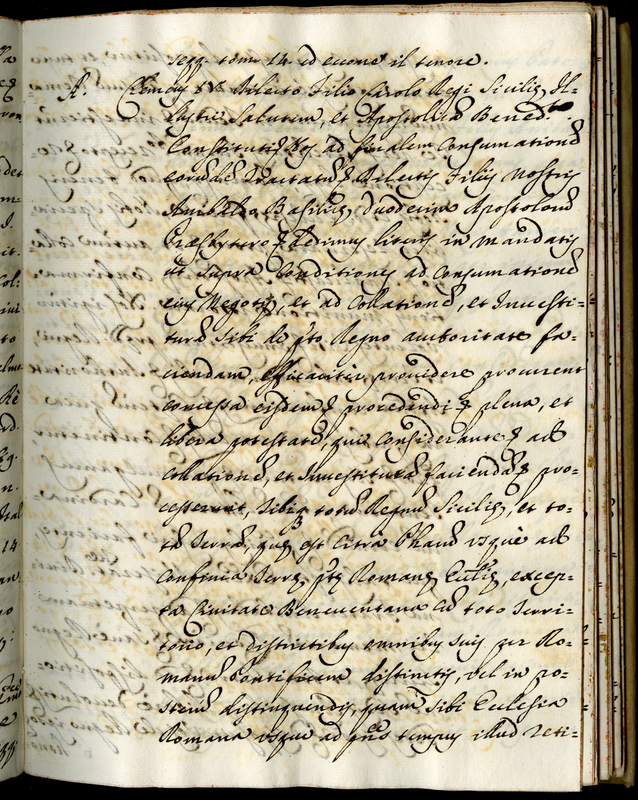 segg. tom. 14. ed eccone il tenore.
A. Clemens &c. Dilecto Filio Carolo Regi Siciliæ Il-
lustri Salutem, et Apostolicã Bened.
Constitutis Nos ad finalem Consumationẽ
eorũdẽ Tractatuũ Dilectis Filiis Nostris
Basilicę Duodecim Apostolorũ
Præsbytero dedimus literis in Mandatis
ut supra Conditiones ad Consumationẽ
eius Negotii, et ad Collationẽ, et Investi-
turã Sibi de pto Regno auctoritate fa-
ciendam, efficaciter providere procurent
concessa eisdem procedendi plena, et
libera potestate, qui Considerantes ad
Collationẽ, et Investiturã faciendã pro-
cesserunt, Sibiq totũ Regnũ Siciliæ, et to-
tã Terrã, quę est Citra Pharũ usque ad
Confinia Terrę, ptę Romanę Ecclię, excep-
ta Civitate Beneventana Cũ toto Terri-
torio, et districtibus omnibus suis per Ro-
manũ Pontificem distinctis, vel in po-
sterũ distinguendis, quam Sibi Ecclesia
Romana usque ad pñs tempus illud reti-